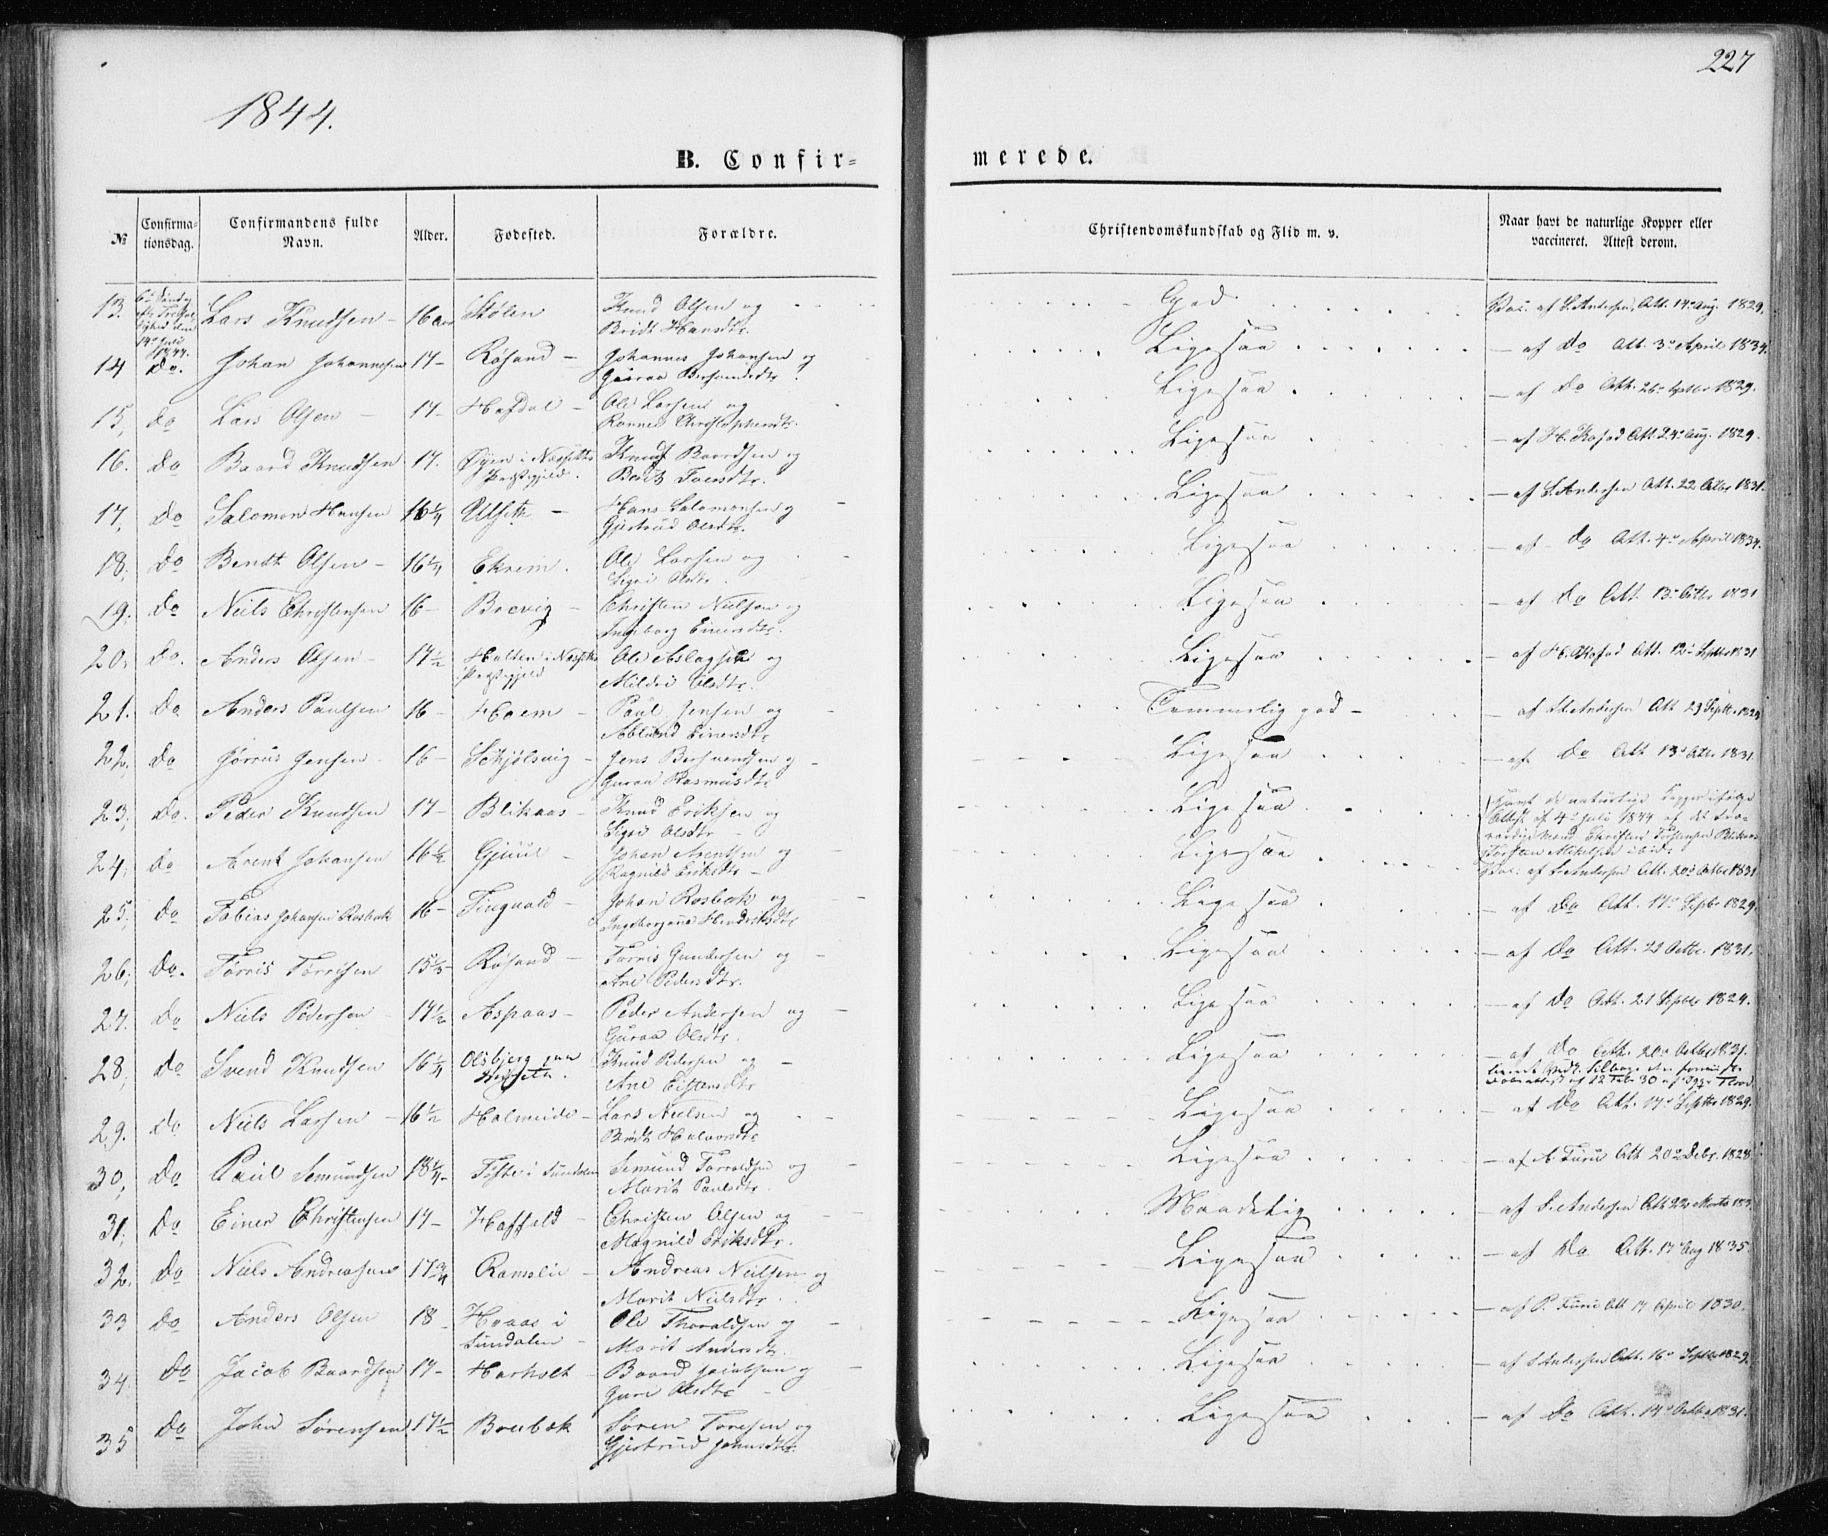 227
1844.
B. Confir-
merede.
№ Confirma-tionsdag. Confirmandens fulde Navn. Alder. Fødested. Forældre. Christendomskundskab og Flid m. v. Naar havt de naturlige Kopper eller vaccineret. Attest derom.
13. 6te Søndag efter Trefoldighed den 14de Juli 1844. Lars Knudsen 16 Aar Stølen Knud Olsen og Bridt Hansdtr. God Vac. af S. Andersen, Att. 14de Aug. 1829.
14 Do. Johan Johannesen 17 Røsand Johannes Johansen og Guraa Bersvendsdtr. Ligesaa af Do Att. 3de April 1834.
15, Do Lars Olsen 17 Hafdal Ole Larsen og Ronnes Christophersdtr. Ligesaa af Do Att. 26de Septbr 1829.
16. Do Baard Knudsen 17. Øyen i Næssets Præstegjeld. Knud Baardsen og Berit Iversdtr. Ligesaa af H. Kofod Att. 24de Aug. 1829.
17, Do Salomon Hansen 16¼ Ulset Hans Salomonsen og Gjertrud Olsdtr. Ligesaa af S. Andersen Att. 22 Octbr 1831.
18, Do Bendt Olsen 16¼ Ekrem. Ole Larsen og Sigri Olsdtr. Ligesaa af Do Att. 4de April 1834.
19, Do Niels Christensen 16 Brevig Christen Nielsen og Ingeborg Einersdtr. Ligesaa af Do Att. 13de Octbr 1831
20, Do. Anders Olsen 17½ Holten i Næssets Præstegjeld Ole Aslagsen og Mildri Olsdtr. Ligesaa af H. Kofod Att. 12te Septbr 1831
21. Do Anders Paulsen 16 Hoem Paul Jensen og Einersdtr. Temmelig god af S. Andersen Att. 29 Septbr. 1829
22. Do Jørius Jensen 16 Schjølsvig Jens Bersvendsen og Guraa Rasmusdtr. Ligesaa af Do Att. 13de Octbr 1831.
23, Do. Peder Knudsen 17 Blikaas Knud Eriksen og Sigri Olsdtr. Ligesaa Havt de naturlige Kopper ifølge Attest af 4de Juli 1844 af det Troværdige Mænd Christen
24, Do Arent Johansen 16½ Gjuul Johan Arentsen og Ragnild Eriksdtr. Ligesaa Vac. af S. Andersen Att. 20de Octbr 1831
25, Do Tobias Johansen Rosbak 16 Tingvold Johan Rosbak og Ingeborgane Hendriksdtr. Ligesaa af Do Att. 17de Septbr 1829.
26, Do. Tørris Tørrisen 15½ Røsand Tørris Gundersen og Ane Pedersdtr. Ligesaa af Do Att. 22 Octbr. 1831.
27. Do Niels Pedersen 17½ Aspaas Peder Andersen og Guraa Olsdtr. Ligesaa af Do Att. 21 Septbr 1827.
28, Do Svend Knudsen 16¼ Olsbjerg Knud Pedersen og Ane Eistensdtr. Ligesaa af Do Att. 20de Octbr 1831.
29. Do Niels Larsen 16½ Holmeide Lars Nielsen og Bridt Halvorsdtr. Ligesaa af Do Att. 17de Septbr 1829.
30, Do Paul Semundsen 18¼ i Sundalen Semund Torvaldsen og Marit Paulsdtr. Ligesaa af A. Furu Att 20de Debr. 1828.
31, Do Einer Christensen 17 Haffeld Christen Olsen og Magnild Eriksdtr. Maadelig af S. Andersen Att 22de Marts
32. Do Niels Andreasen 17¾ Ramslie Andreas Nielsen og Marit Nielsdtr. Ligesaa af Do Att. 17de Aug 1835.
33 Do Anders Olsen 18 Hoaas i Sundalen Ole Thoraldsen og Marit Andersdtr. Ligesaa af P. Furu Att 17 April 1830.
34. Do Jacob Baardsen 17 Harholt Baard Jacobsen og Guri Olsdtr Ligesaa af S Andersen Att. 16de Septbr 1829.
35 Do John Sørensen 17½ Boubæk Søren Toresen og Gjertrud Johnsdtr. Ligesaa af Do Att. 14de Octbr 1831.